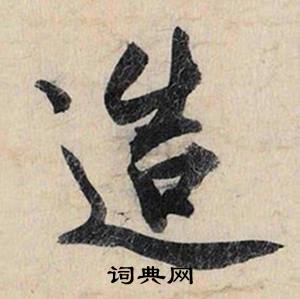 造
词典网